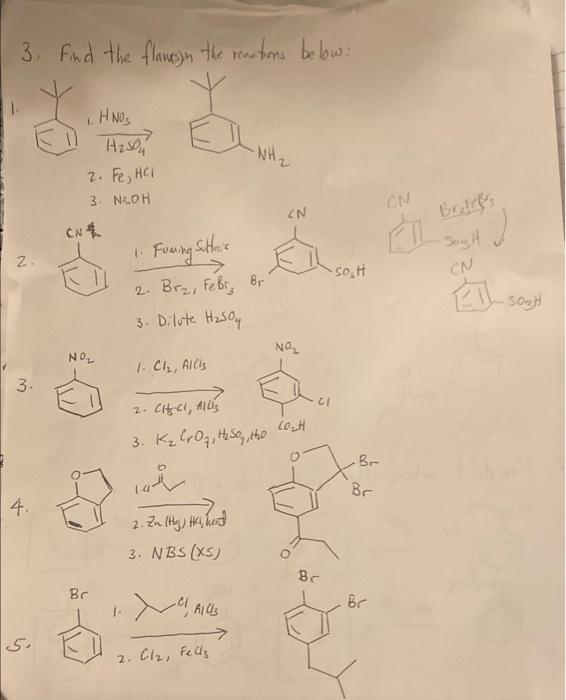 3. Find the flaws in the reactions below:
1.
1. HNO3
H2SO4
2. Fe, HCl
3. NaOH
NH2
2.
CN
1. Fuming Sulfuric
2. Br2, FeBr3
3. Dilute H2SO4
CN
Br
SO3H
CN
Br2 FeBr3
SO3H
CN
SO3H
3.
NO2
1. Cl2, AlCl3
2. CH3-Cl, AlCl3
3. K2CrO7, H2SO4, H2O
NO2
Cl
CO2H
4.
O
O
1. Cl
2. Zn (Hg) HCl, heat
3. NBS (XS)
O
Br
Br
O
5.
Br
1. Cl, AlCl3
2. Cl2, FeCl3
Br
Br